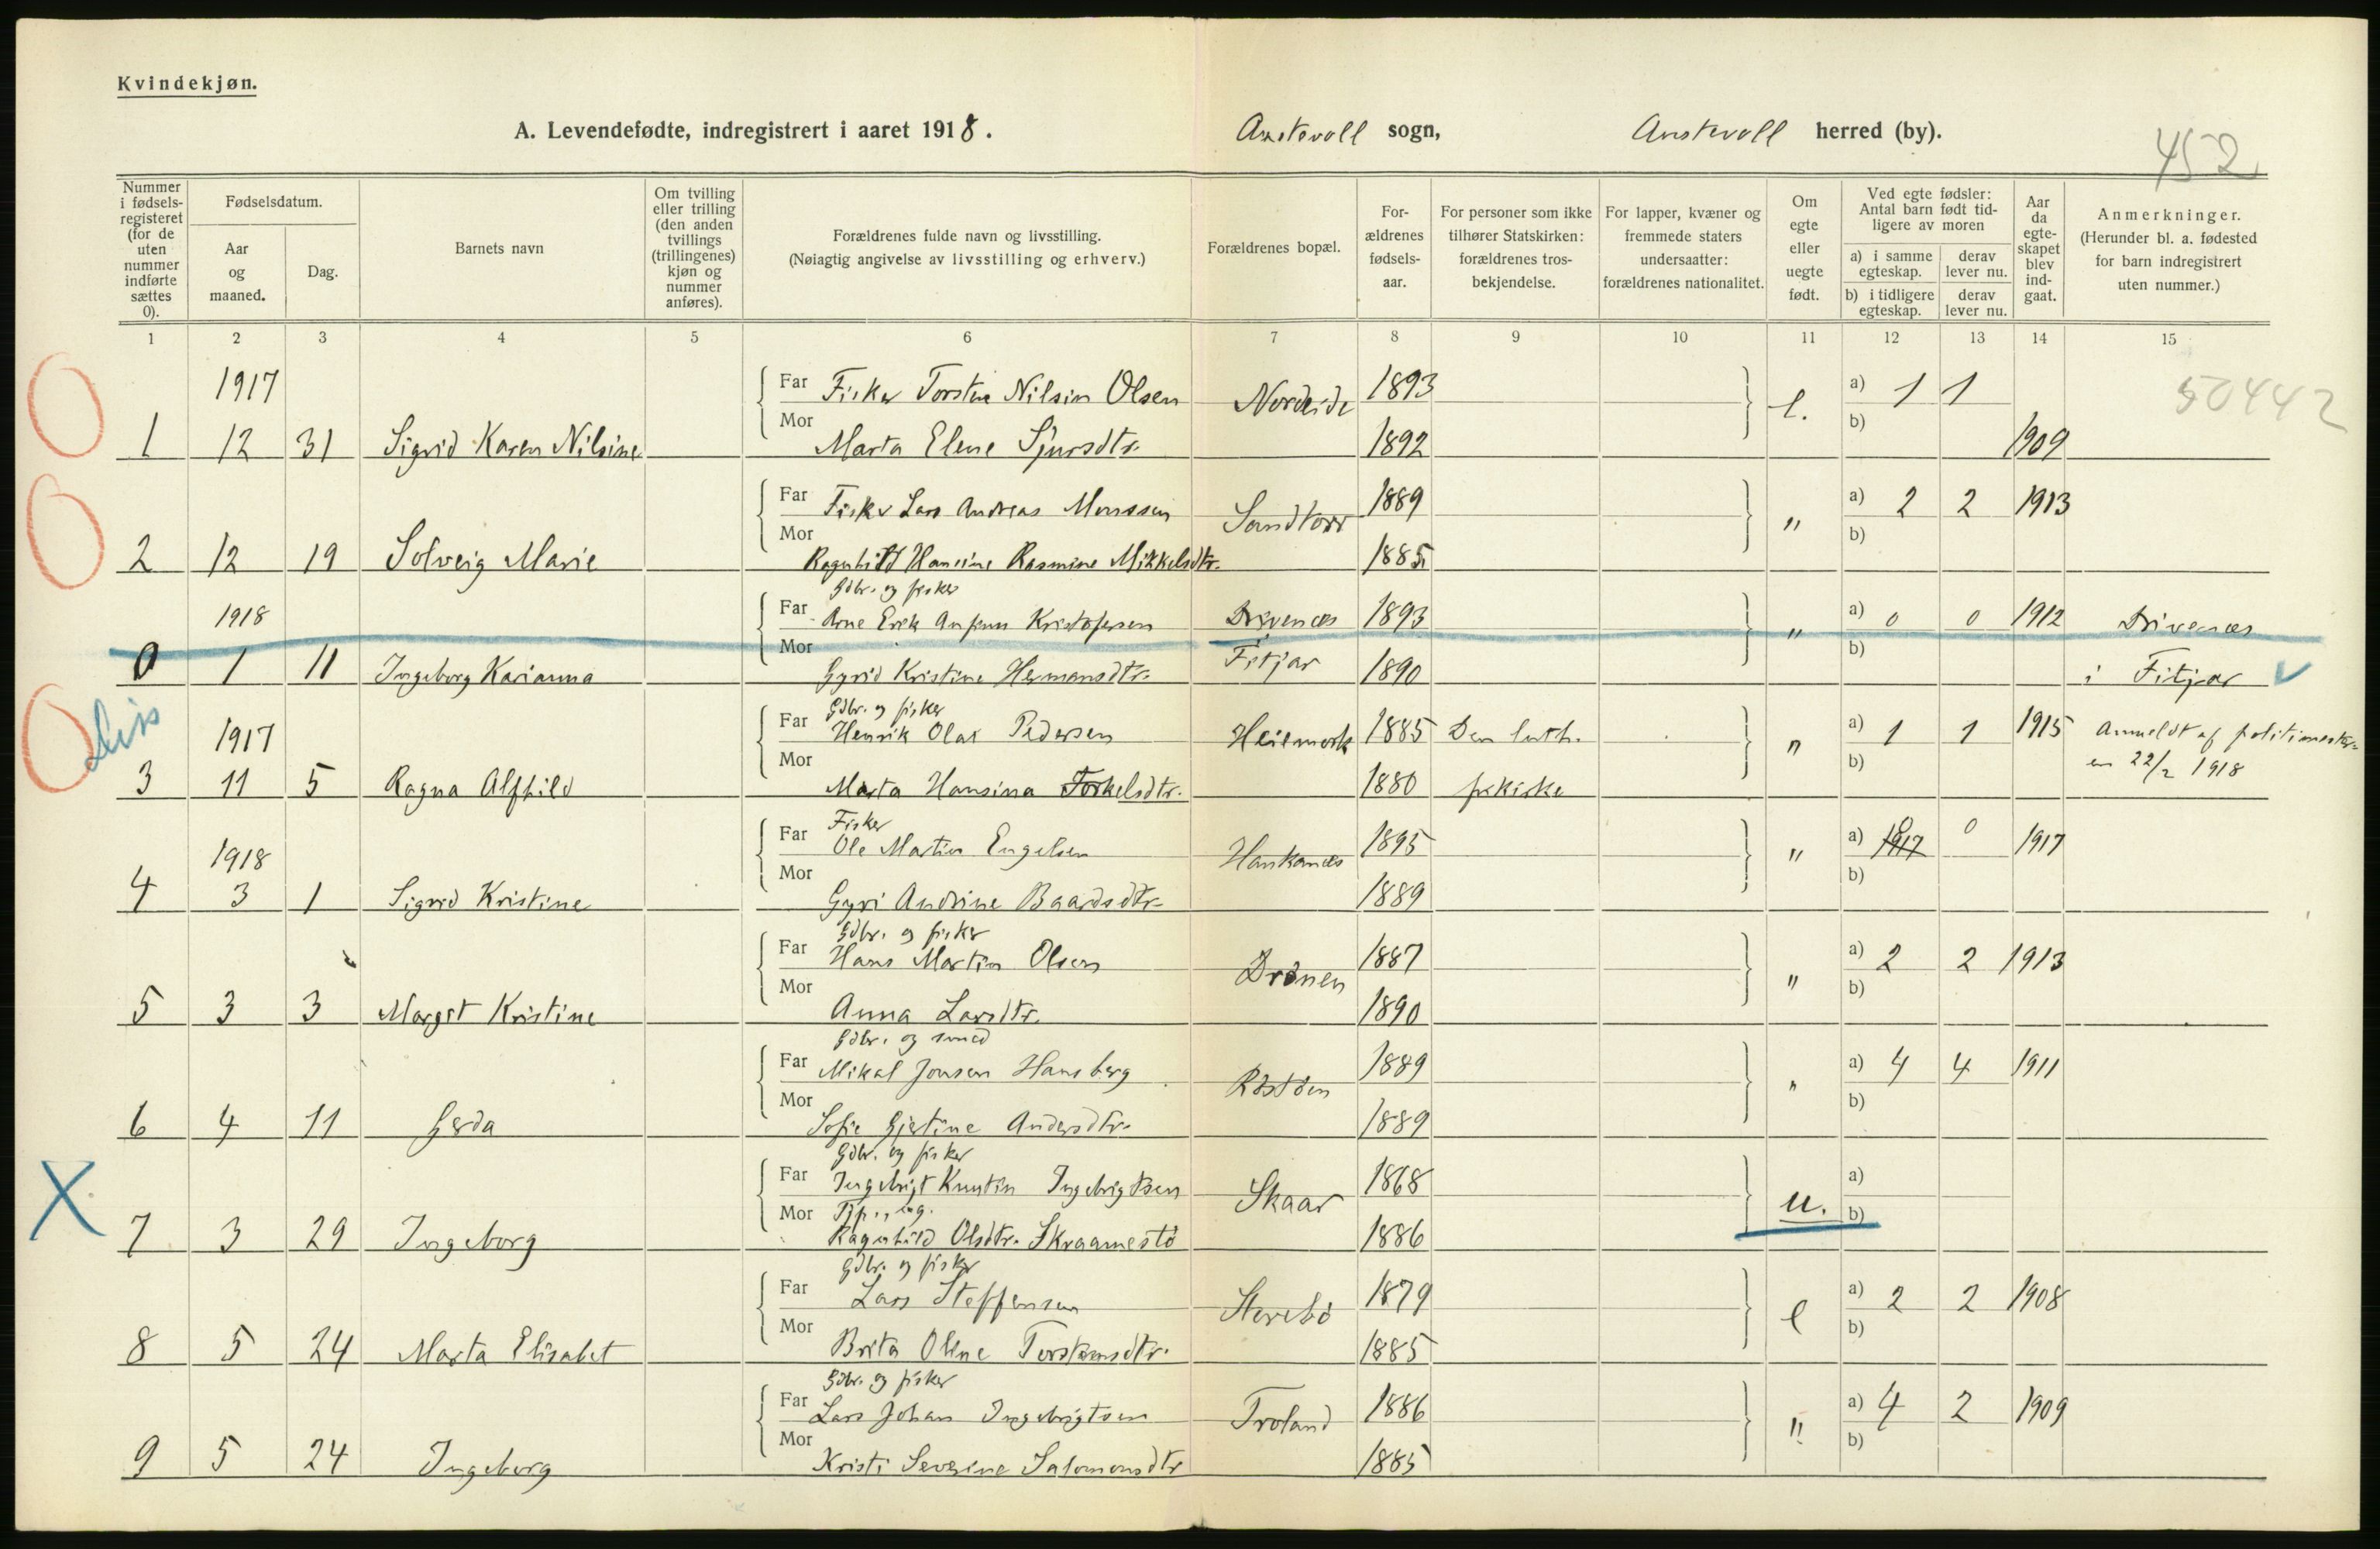 Kvindekjøn.
A. Levendefødte, indregistrert i aaret 1918. Austevoll sogn, Austevoll herred (by).
452
Nummer i fødselsregisteret (for de uten nummer indførte sættes 0).
Fødselsdatum.
Aar og maaned.
Dag.
Barnets navn
Om tvilling eller trilling (den anden tvillings (trillingenes) kjøn og nummer anføres).
Forældrenes fulde navn og livsstilling.
(Nøiagtig angivelse av livsstilling og erhverv.)
Forældrenes bopæl.
Forældrenes fødselsaar.
For personer som ikke tilhører Statskirken: forældrenes trosbekjendelse.
For lapper, kvæner og fremmede staters undersaatter: forældrenes nationalitet.
Om egte eller uegte født.
Ved egte fødsler: Antal barn født tidligere av moren
a) i samme egteskap. derav lever nu.
b) i tidligere egteskap. derav lever nu.
Aar da egteskapet blev indgaat.
Anmerkninger.
(Herunder bl. a. fødested for barn indregistrert uten nummer.)
1 2 3 4 5 6 7 8 9 10 11 12 13 14 15
50442
1917 Far Fisker Torsten Nilsin Olsen Nordeide 1893 e. a) 1 1
1 12 31 Sigrid Karen Nilsine Mor Marta Elene Sjursdtr. 1892 b) 1909
Far Fisker Lars Andreas Monssen Sandtorv 1889 " a) 2 2 1913
2 12 19 Solveig Marie Mor Ragnhild Hansine Rasmine Mikkelsdtr. 1885 b)
Gdbr. og fisker
1918 Far Arne Erik Anfinn Kristofersen Drivenes 1893 " a) 0 0 1912 Drivenes
0 1 11 Ingeborg Karianna Mor Gyrid Kristine Hermansdtr. Fitjar 1890 b) i Fitjar
Gdbr. og fisker
1917 Far Henrik Olai Pedersen Heiemark 1885 Den luth. " a) 1 1 1915 Anmeldt af politimester-
3 11 5 Ragna Alfhild Mor Marta Hansina Torkelsdtr. 1880 frikirke b) en 22/2 1918
Fisker
1918 Far Ole Martin Engelsen Haukanes 1895 " a) 0 0 1917
4 3 1 Sigrid Kristine Mor Gyri Andrine Baardsdtr. 1889 b)
Gdbr. og fisker
Far Hans Martin Olsen Drönen 1887 " a) 2 2 1913
5 3 3 Margit Kristine Mor Anna Larsdtr. 1890 b)
Gdbr. og smed
Far Mikal Jonsen Hansberg Röstöen 1889 " a) 4 4 1911
6 4 11 Gerda Mor Sofie Gjertine Andersdtr. 1889 b)
Gdbr. og fisker
Far Ingebrigt Knutin Ingebrigtsen Skaar 1868 u. a)
7 3 29 Ingeborg Mor Tjp., ug. Ragnhild Olsdtr. Skraamestö 1886 b)
Gdbr. og fisker
Far Lars Steffensen Storebö 1879 e a) 2 2 1908
8 5 24 Marta Elisabet Mor Brita Oline Torstensdtr. 1885 b)
Gdbr. og fisker
Far Lars Johan Ingebrigtsen Troland 1886 " a) 4 2 1909
9 5 24 Ingeborg Mor Kristi Severine Salomonsdtr 1885 b)